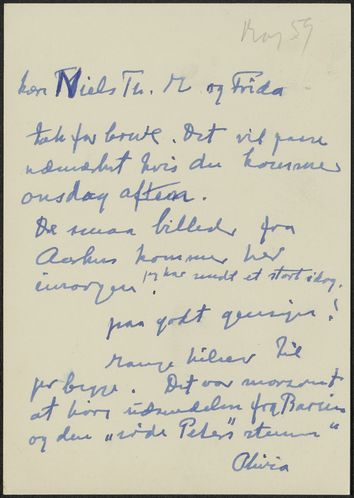 Maj 59
kære Niels Th. M og Frida
tak for brevet. Det vil passe
udmærket hvis du kommer
onsdag aften.
De smaa billeder fra
Aarhus kommer her
imorgen! jeg har sendt et stort idag.
paa godt gensyn!
mange hilsner til
jer begge. Det var morsomt
at høre udsendelsen fra
og den „røde Peters stemme“
Olivia